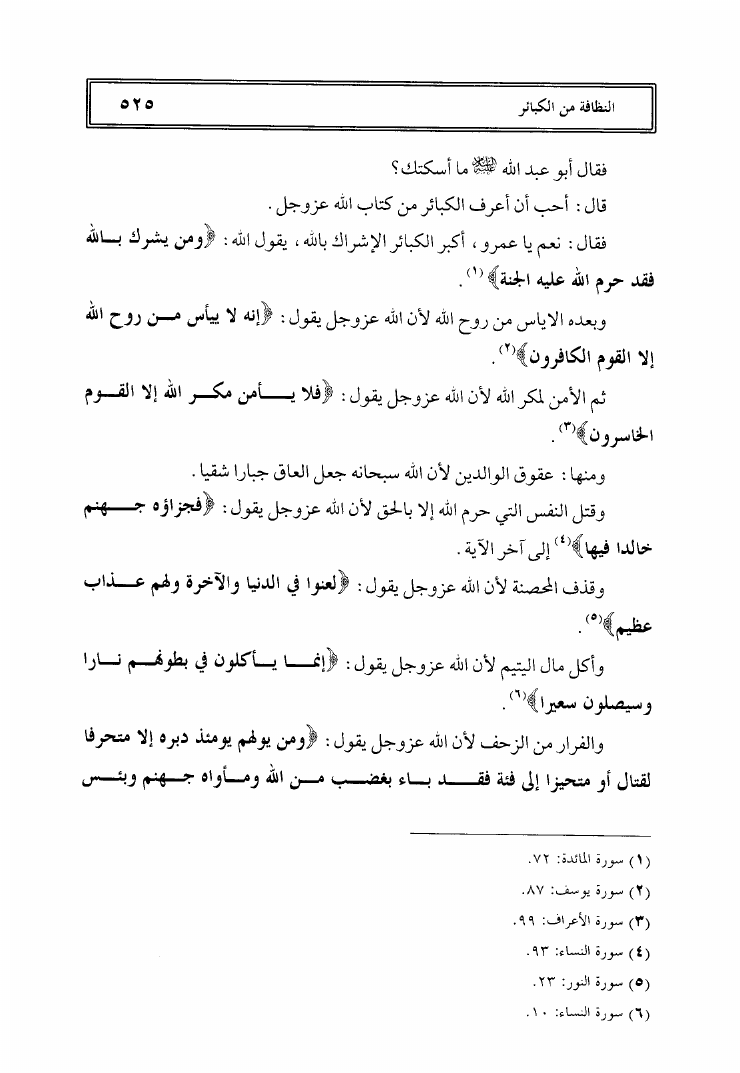 النظافة من الكبائر ٥٢٥
فقال أبو عبد الله عليه السلام ما أسكتك؟
قال: أحب أن أعرف الكبائر من كتاب الله عزوجل.
فقال: نعم يا عمرو، أكبر الكبائر الإشراك بالله، يقول الله: ﴿ومن يشرك بالله
فقد حرم الله عليه الجنة﴾(١).
وبعده الاياس من روح الله لأن الله عزوجل يقول: ﴿إنه لا ييأس من روح الله
إلا القوم الكافرون﴾(٢).
ثم الأمن لمكر الله لأن الله عزوجل يقول: ﴿فلا يأمن مكر الله إلا القوم
الخاسرون﴾(٣).
ومنها: عقوق الوالدين لأن الله سبحانه جعل العاق جبارا شقيا.
وقتل النفس التي حرم الله إلا بالحق لأن الله عزوجل يقول: ﴿فجزاؤه جهنم
خالدا فيها﴾(٤) إلى آخر الآية.
وقذف المحصنة لأن الله عزوجل يقول: ﴿لعنوا في الدنيا والآخرة ولهم عذاب
عظيم﴾(٥).
وأكل مال اليتيم لأن الله عزوجل يقول: ﴿إنما يأكلون في بطونهم نارا
وسيصلون سعيرا﴾(٦).
والفرار من الزحف لأن الله عزوجل يقول: ﴿ومن يولهم يومئذ دبره إلا متحرفا
لقتال أو متحيزا إلى فئة فقد باء بغضب من الله ومأواه جهنم وبئس
(١) سورة المائدة: ٧٢.
(٢) سورة يوسف: ٨٧.
(٣) سورة الأعراف: ٩٩.
(٤) سورة النساء: ٩٣.
(٥) سورة النور: ٢٣.
(٦) سورة النساء: ١٠.